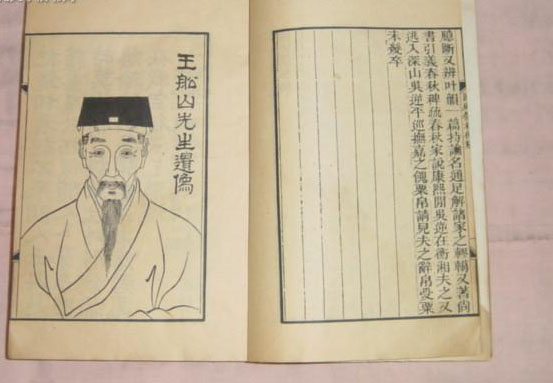 臆斷又辨叶韻一篇持論名通足解諸家之轇轕又著尚
書引義春秋稗疏春秋家說康熙間吳逆在衡湘夫之又
逃入深山吳逆平巡撫嘉之餽粟帛請見夫之辭帛受粟
未幾卒
王船山先生遺像